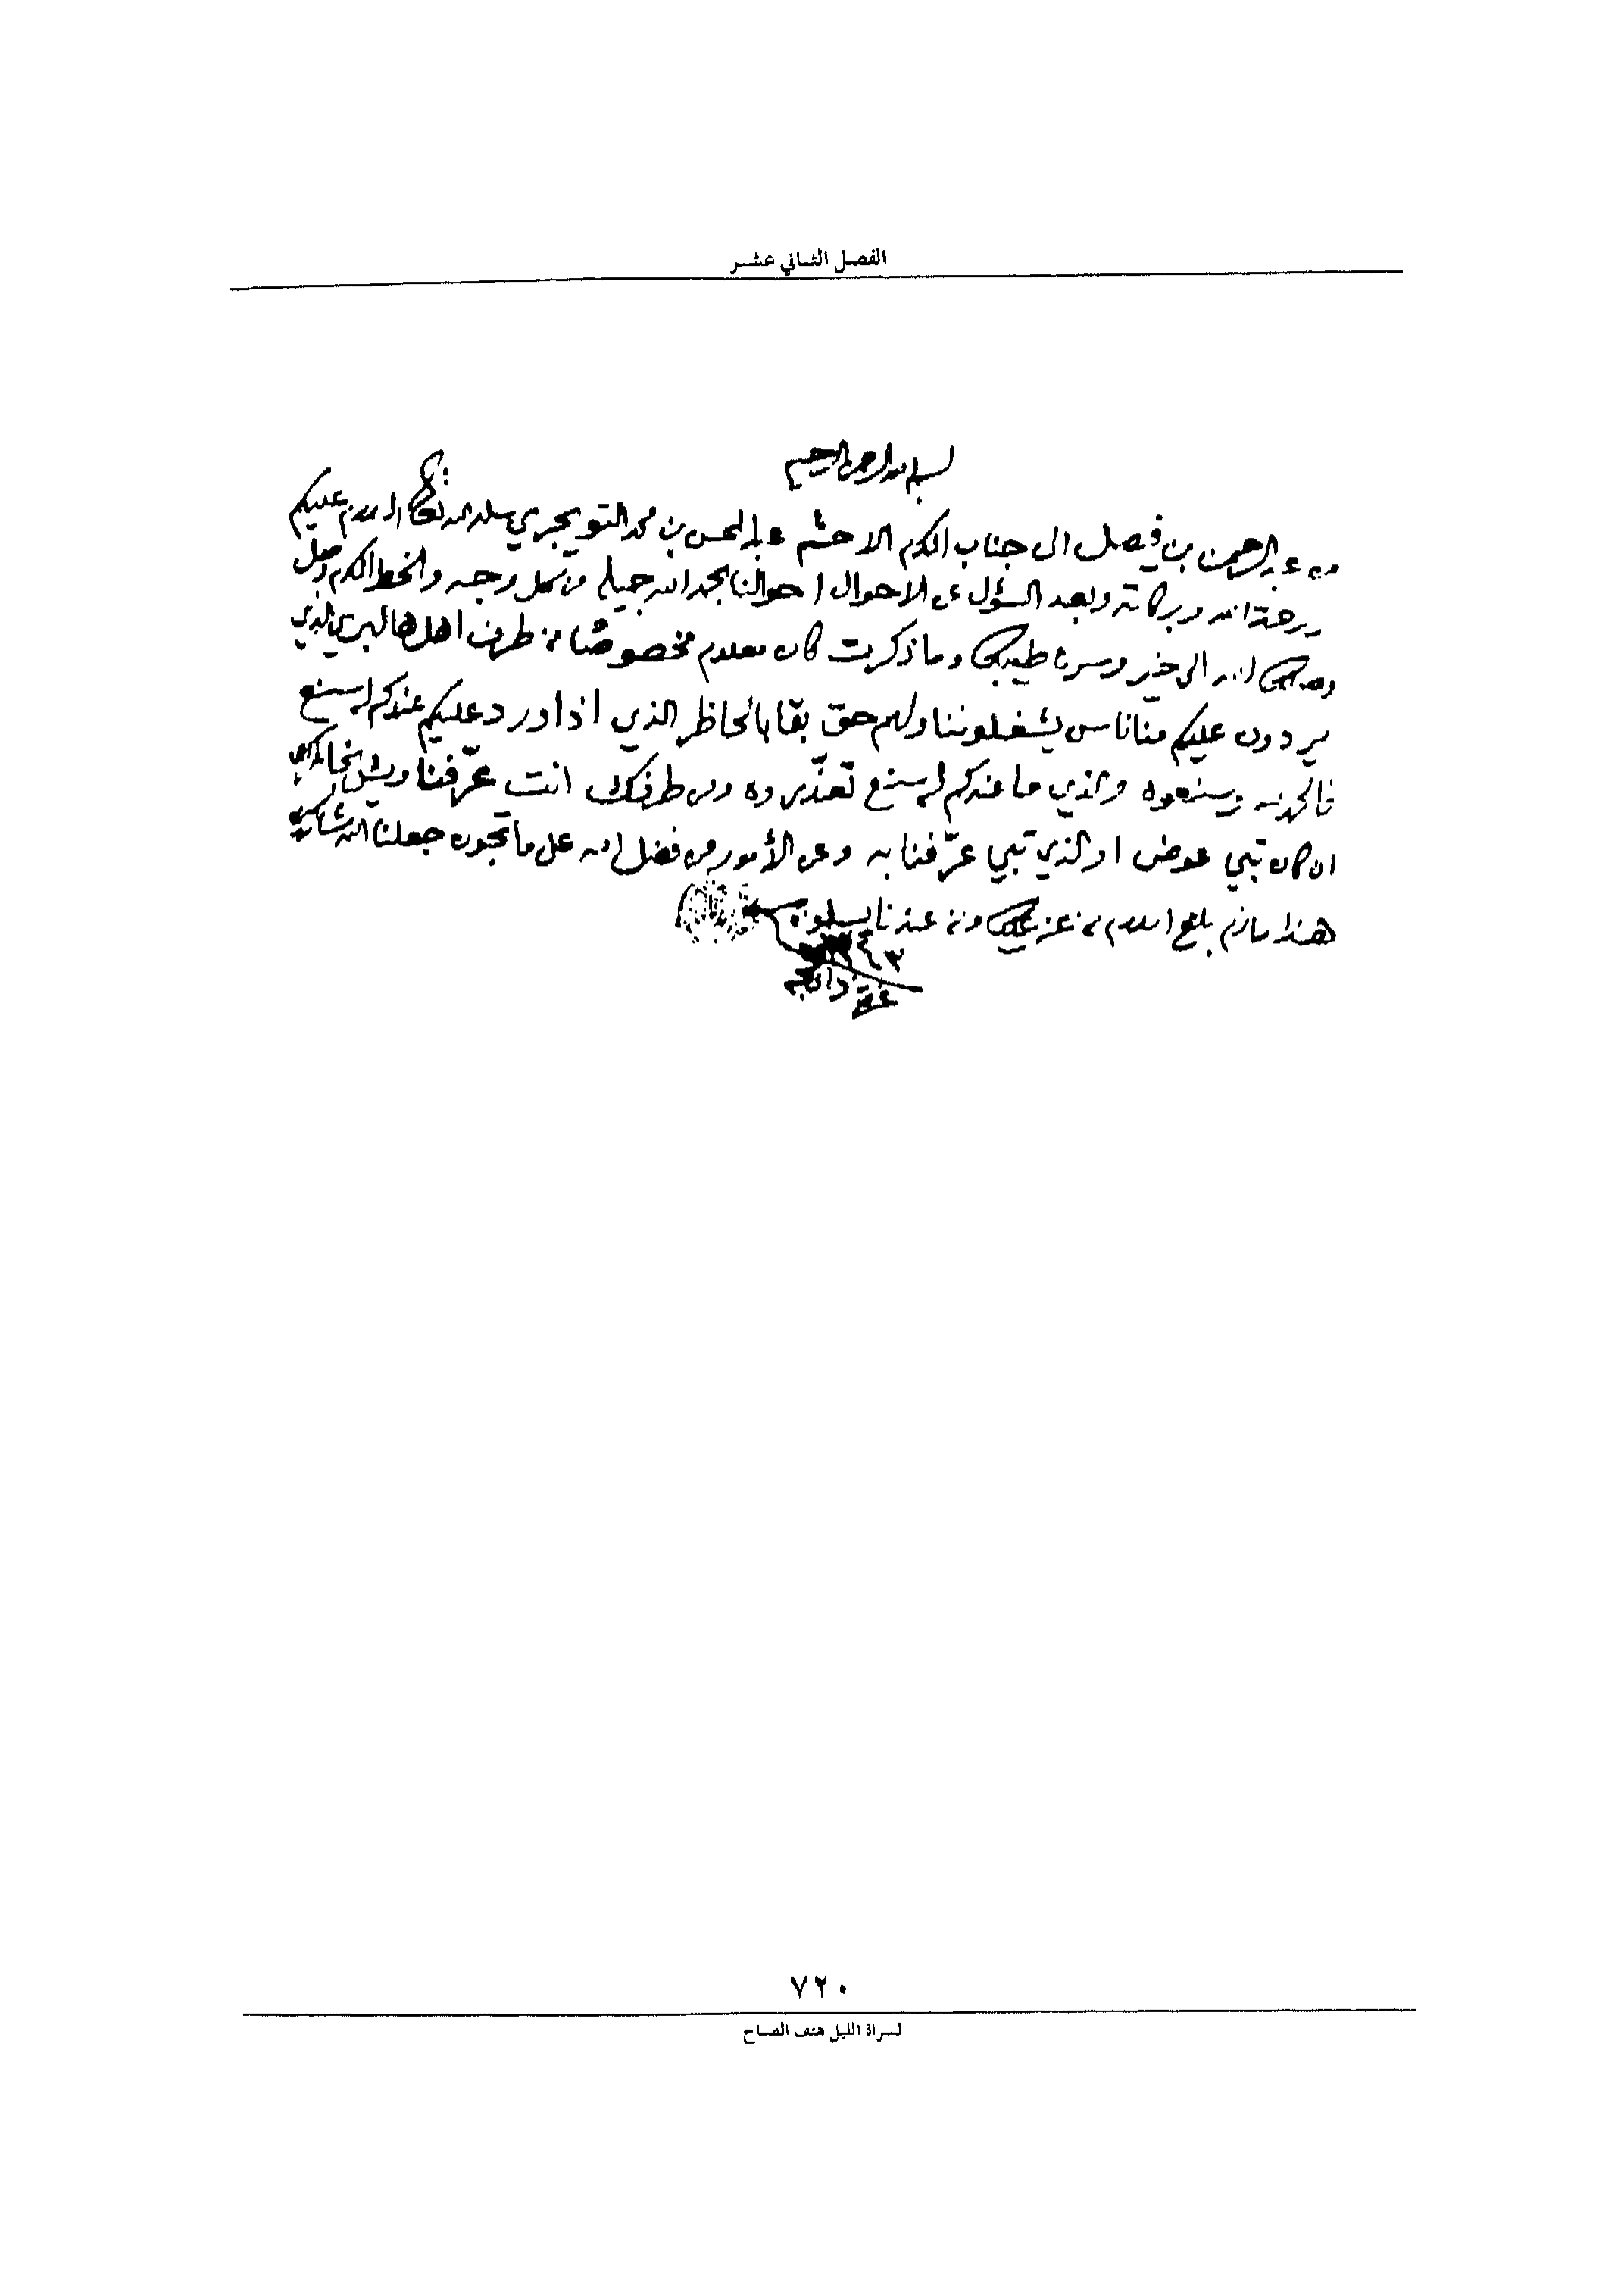 الفصل الثاني عشر
بسم الله الرحمن الرحيم
من عبدالرحمن بن فيصل الى جناب المكرم الاحشم عبدالمحسن بن محمد التويجري سلمه الله تعالى السلام عليكم
ورحمة الله وبركاته وبعد السؤل عن الاحوال احوالنا بحمد الله جميله من كل وجه والخط المكرم وصل
وصلك الله الى خير وسره طيبك وما ذكرت كان معلوم مخصوصًا من طرف اهل هالبري الذي
يردون عليكم منا ناس يشغلوننا ولهم حق بقا بالخاظر الذي اذا ورد عليكم عندكم له سنع
فالحمد لله وسنعوه والذي ما عندكم له سنع تعذّروه ومن طرفك انت عرّفنا
ان كان تبي عوض او الذي تبي عرّفنا به وعن الأمور من فضل الله على ما تحبون جعلنا الله شاكرين
هذا مالزم بلغ السلام من عز عليك ومن عندنا يسلمون
١٣٤٣
غرة ذالحجه
٧٢٠
لسراة الليل هتف الصباح